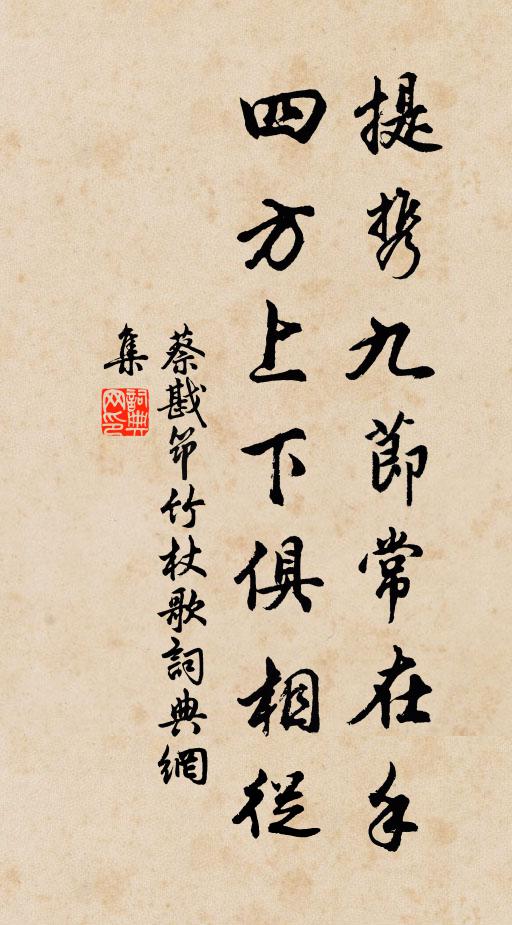 提携九節常在手
四方上下俱相從
蔡戡筇竹杖歌詞典網
集
詞典
网印